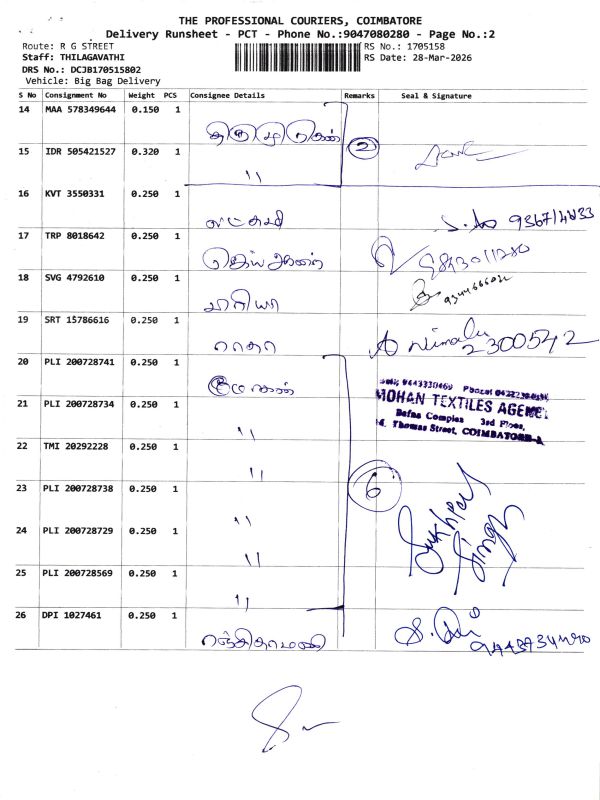 THE PROFESSIONAL COURIERS, COIMBATORE
Delivery Runsheet - PCT - Phone No.:9047080280 - Page No.:2
Route: R G STREET
RS No.: 1705158
Staff: THILAGAVATHI
RS Date: 28-Mar-2026
DRS No.: DCJB170515802
Vehicle: Big Bag Delivery
S No Consignment No Weight PCS Consignee Details Remarks Seal & Signature
14 MAA 578349644 0.150 1
2
15 IDR 505421527 0.320 1
,,
16 KVT 3550331 0.250 1
லட்சுமி
17 TRP 8018642 0.250 1
18 SVG 4792610 0.250 1
மாரியா
19 SRT 15786616 0.250 1
ராதா Nirmala 2300542
20 PLI 200728741 0.250 1
மோகன்
MOHAN TEXTILES AGENCY
21 PLI 200728734 0.250 1
Complex 3rd Floor,
Thomas Street, COIMBATORE-1
,,
22 TMI 20292228 0.250 1
,,
23 PLI 200728738 0.250 1
6
,,
24 PLI 200728729 0.250 1
Sukhpal Singh
,,
25 PLI 200728569 0.250 1
,,
26 DPI 1027461 0.250 1
ரஞ்சிதாமணி